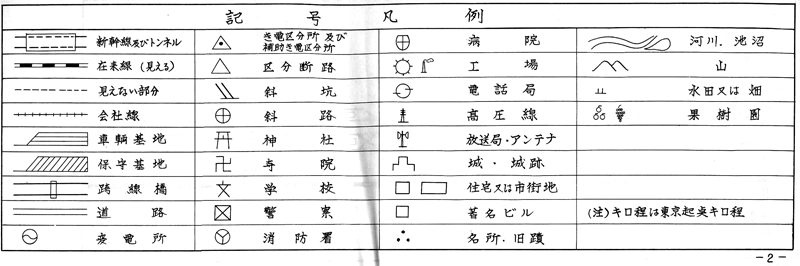 記号凡例
新幹線及びトンネル
き電区分所及び
補助き電区分所
病院
河川.池沼
在来線(見える)
区分断路
工場
山
見えない部分
斜坑
電話局
水田又は畑
会社線
斜路
高圧線
果樹園
車輌基地
神社
放送局・アンテナ
保守基地
寺院
城・城跡
跨線橋
学校
住宅又は市街地
道路
警察
著名ビル
(注)キロ程は東京起点キロ程
変電所
消防署
名所.旧蹟
-2-